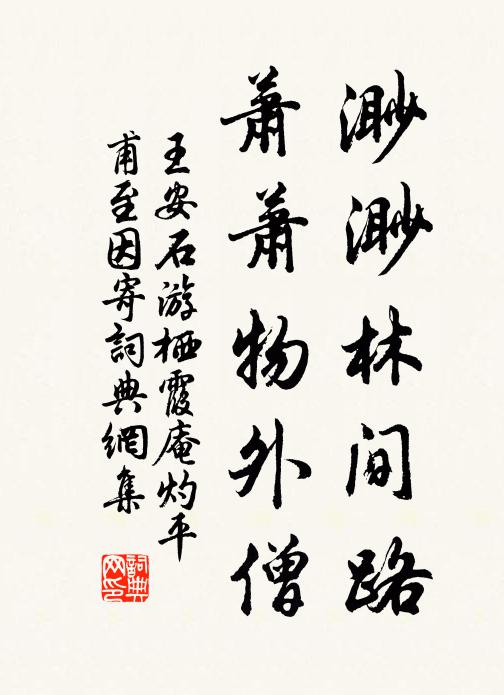 渺渺林间路
萧萧物外僧
王安石游栖霞庵灼平
甫至因寄詞典網集
詞典
网印